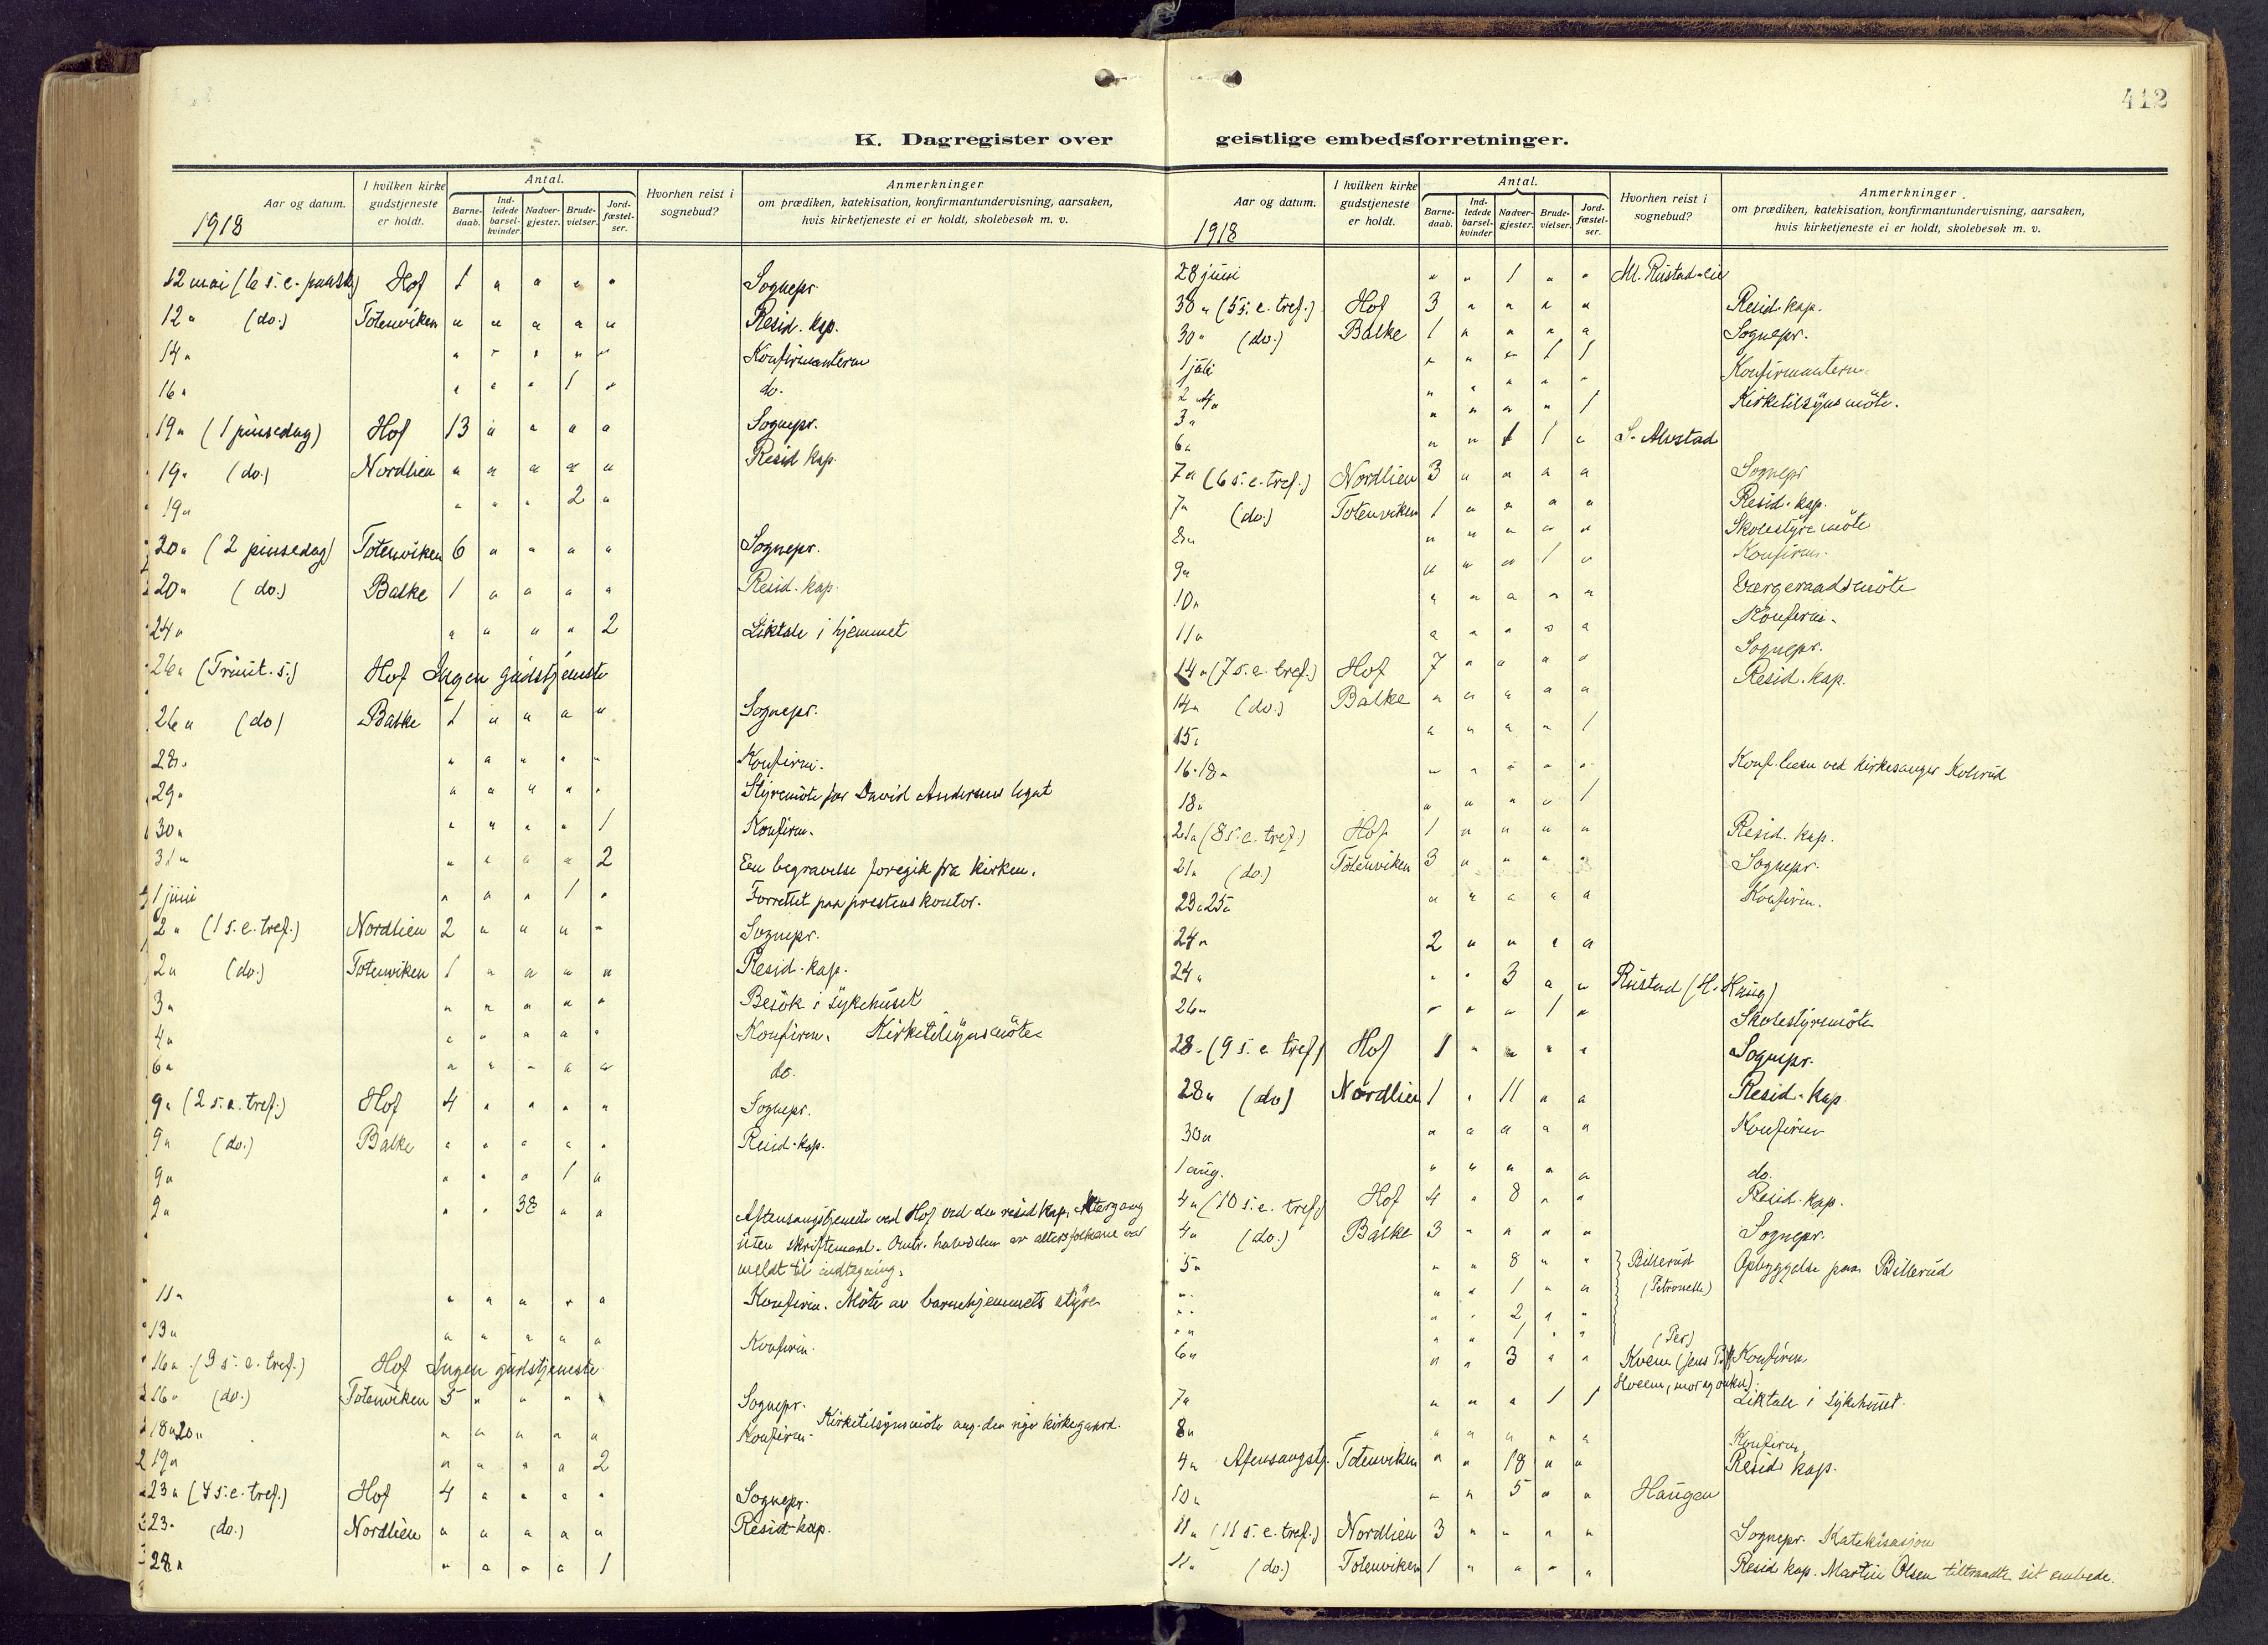 412
K. Dagregister over geistlige embedsforretninger.
Aar og datum.
1918
I hvilken kirke gudstjeneste er holdt.
Antal.
Barne-daab.
Ind-ledede barsel-kvinder.
Nadver-gjester.
Brude-vielser.
Jord-fæstel-ser.
Hvorhen reist i sognebud?
Anmerkninger
om prædiken, katekisation, konfirmantundervisning, aarsaken,
hvis kirketjeneste ei er holdt, skolebesøk m. v.
12 mai (6 s. e. paaske) Hof 1 " " " " Sognepr.
12 " (do.) Totenviken " " " " " Resid. kap.
14 " " " " " " Konfirmanterne
16 " " " " 1 " do.
19 " (1 pinsedag) Hof 13 " " " " Sognepr.
19 " (do.) Nordlien " " " " " Resid kap.
19 " " " " 2 "
20 " (2 pinsedag) Totenviken 6 " " " " Sognepr.
20 " (do.) Balke 1 " " " " Resid. kap.
24 " " " " " 2 Liktale i hjemmet
26 " (Trinit. s.) Hof Ingen gudstjeneste
26 " (do) Balke 1 " " " " Sognepr.
28 " " " " " " Konfirm.
29 " " " " " " Styremöte for David Andersens legat
30 " " " " " 1 Konfirm.
31 " " " " " 2 Een begravelse foregik fra kirken.
1 juni " " " 1 " Forrettet paa prestens kontor.
2 " (1 s. e. tref.) Nordlien 2 " " " " Sognepr.
2 " (do.) Totenviken 1 " " " " Resid. kap.
3 " " " " " " Besök i sykehuset
4 " " " " " " Konfirm. Kirketilsynsmöte
6 " " " " " " do.
9 " (2 s. e. tref.) Hof 4 " " " " Sognepr.
9 " (do.) Balke " " " " " Resid. kap.
9 " " " " 1 "
9 " " " 38 " " Aftensangstjeneste ved Hof ved den resid kap. Altergang
uten skriftemaal. Omtr. halvdelen av altersfolkene var
meldt til indtegning.
11 " " " " " " Konfirm. Möte av barnehjemmets styre
13 " " " " " " Konfirm.
16 " (3 s. e. tref.) Hof Ingen gudstjeneste
16 " (do.) Totenviken 5 " " " " Sognepr.
18 " 20 " " " " " " Konfirm. Kirketilsynsmöte ang. den nye kirkegaard.
19 " " " " " 2
23 " (4 s. e. tref.) Hof 4 " " " " Sognepr.
23 " (do.) Nordlien " " " " " Resid. kap.
28 " " " " " 1
Aar og datum.
1918
I hvilken kirke gudstjeneste er holdt.
Antal.
Barne-daab.
Ind-ledede barsel-kvinder.
Nadver-gjester.
Brude-vielser.
Jord-fæstel-ser.
Hvorhen reist i sognebud?
Anmerkninger.
om prædiken, katekisation, konfirmantundervisning, aarsaken,
hvis kirketjeneste ei er holdt, skolebesøk m. v.
28 juni " " 1 " " Rustad
30 " (5 s. e. tref.) Hof 3 " " " " Resid. kap.
30 " (do.) Balke 1 " " " " Sognepr.
1 juli " " " 1 1
2 " 4 " " " " " " Konfirmanterne
3 " " " " " 1 Kirketilsynsmöte.
6 " " " 1 1 " S. Alvstad
7 " (6 s. e. tref.) Nordlien 3 " " " " Sognepr
7 " (do.) Totenviken 1 " " " " Resid. kap.
8 " " " " " " Skolestyremöte
9 " " " " 1 " Konfirm.
10 " " " " " " Værgeraadsmöte
11 " " " " " " Konfirm.
14 " (7 s. e. tref.) Hof 7 " " " " Sognepr.
14 " (do.) Balke " " " " " Resid. kap.
15 " " " " " 1
16-18 " " " " " " Konf. læsn ved kirkesanger Kolsrud
18 " " " " " 1
21 " (8 s. e. tref.) Hof 1 " " " " Resid. kap.
21 " (do.) Totenviken 3 " " " " Sognepr.
23 " 25 " " " " " " Konfirm.
24 " 2 " " " "
24 " " " 3 " " Rustad (H. Haug)
26 " " " " 1 " Skolestyremöte
28 " (9 s. e. tref) Hof 1 " " " " Sognepr.
28 " (do) Nordlien 1 " 11 " " Resid. kap
30 " " " " " " Konfirm
1 aug. " " " " " do.
4 " (10 s. e. tref) Hof 4 " 8 " " Resid. kap.
4 " (do.) Balke 3 " " " " Sognepr.
5 " " " 8 " " Billerud Opbyggelse paa Billerud
" " " " 1 " " (Petronelle)
" " " " 2 " "
" " " " 1 " " (Per)
6 " " " 3 " " Kvem (Jens Konfirm.
Hveem, mor og onkel).
7 " " " " 1 1 Liktale i sykehuset.
8 " " " " " " Konfirm.
4 " Aftensangstj. Totenviken " " 18 " " Resid. kap.
10 " " " 5 " " Haugen
11 " (11 s. e. tref.) Nordlien 3 " " " " Sognepr. Katekisasjon
11 " (do.) Totenviken 1 " " " " Resid kap. Martin Olsen tiltraadte sit embede.